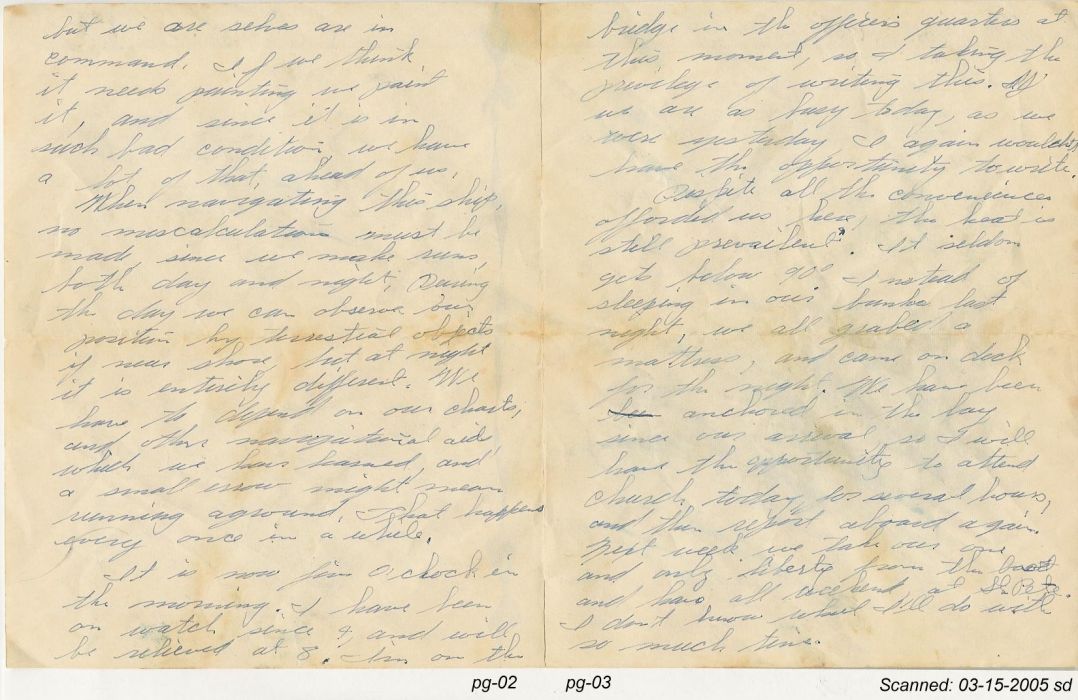 but we are selves are in
command. If we think
it needs painting we paint
it, and since it is in
such bad condition we have
a lot of that, ahead of us.
When navigating this ship,
no miscalculations must be
made, since we make runs,
both day and night. During
the day we can observe our
position by terrestial objects
if near shore, but at night
it is entirely different. We
have to depend on our charts,
and other navigational aids
which we have learned, and
a small error might mean
running aground. That happens
every once in a while.
It is now five o'clock in
the morning. I have been
on watch since 4, and will
be relieved at 8. I'm on the
bridge in the officers quarters at
this moment, so I taking the
privilege of writing this. If
we are as busy today, as we
were yesterday I again wouldn't
have the opportunity to write.
Despite all the conveniences
afforded us here, the heat is
still prevailent. It seldom
gets below 90° Instead of
sleeping in our bunks last
night, we all grabed a
mattress, and came on deck
for the night. We have been
anchored in the bay
since our arrival so I will
have the opportunity to attend
church today for several hours,
and then report aboard again.
Next week we take our one
and only liberty from the boat
and have all weekend at St. Pete.
I don't know what I'll do with
so much time.
pg-02 pg-03 Scanned: 03-15-2005 sd